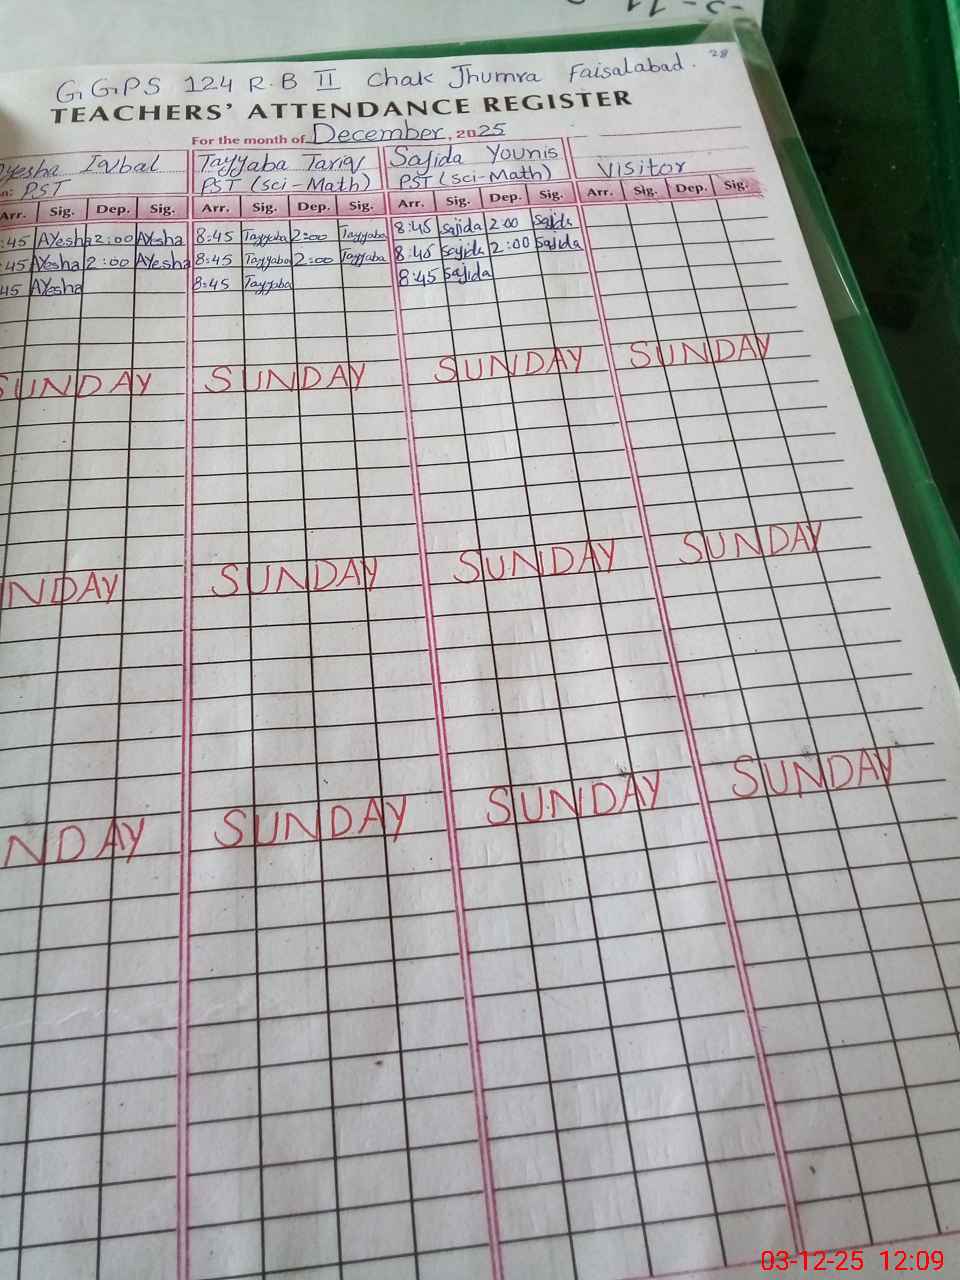 G.G.P.S 124 R.B II Chak Jhumra Faisalabad. 28
TEACHERS' ATTENDANCE REGISTER
For the month of December, 2025
Ayesha Iqbal Tayyaba Tariq Sajida Younis Visitor
PST PST (Sci-Math) PST (Sci-Math)
Arr. Sig. Dep. Sig. Arr. Sig. Dep. Sig. Arr. Sig. Dep. Sig. Arr. Sig. Dep. Sig.
:45 AYesha 2:00 AYesha 8:45 Tayyaba 2:00 Tayyaba 8:45 Sajida 2:00 Sajida
:45 AYesha 2:00 AYesha 8:45 Tayyaba 2:00 Tayyaba 8:45 Sajida 2:00 Sajida
45 AYesha 8:45 Tayyaba 8:45 Sajida
SUNDAY SUNDAY SUNDAY SUNDAY
NDAY SUNDAY SUNDAY SUNDAY
NDAY SUNDAY SUNDAY SUNDAY
03-12-25 12:09